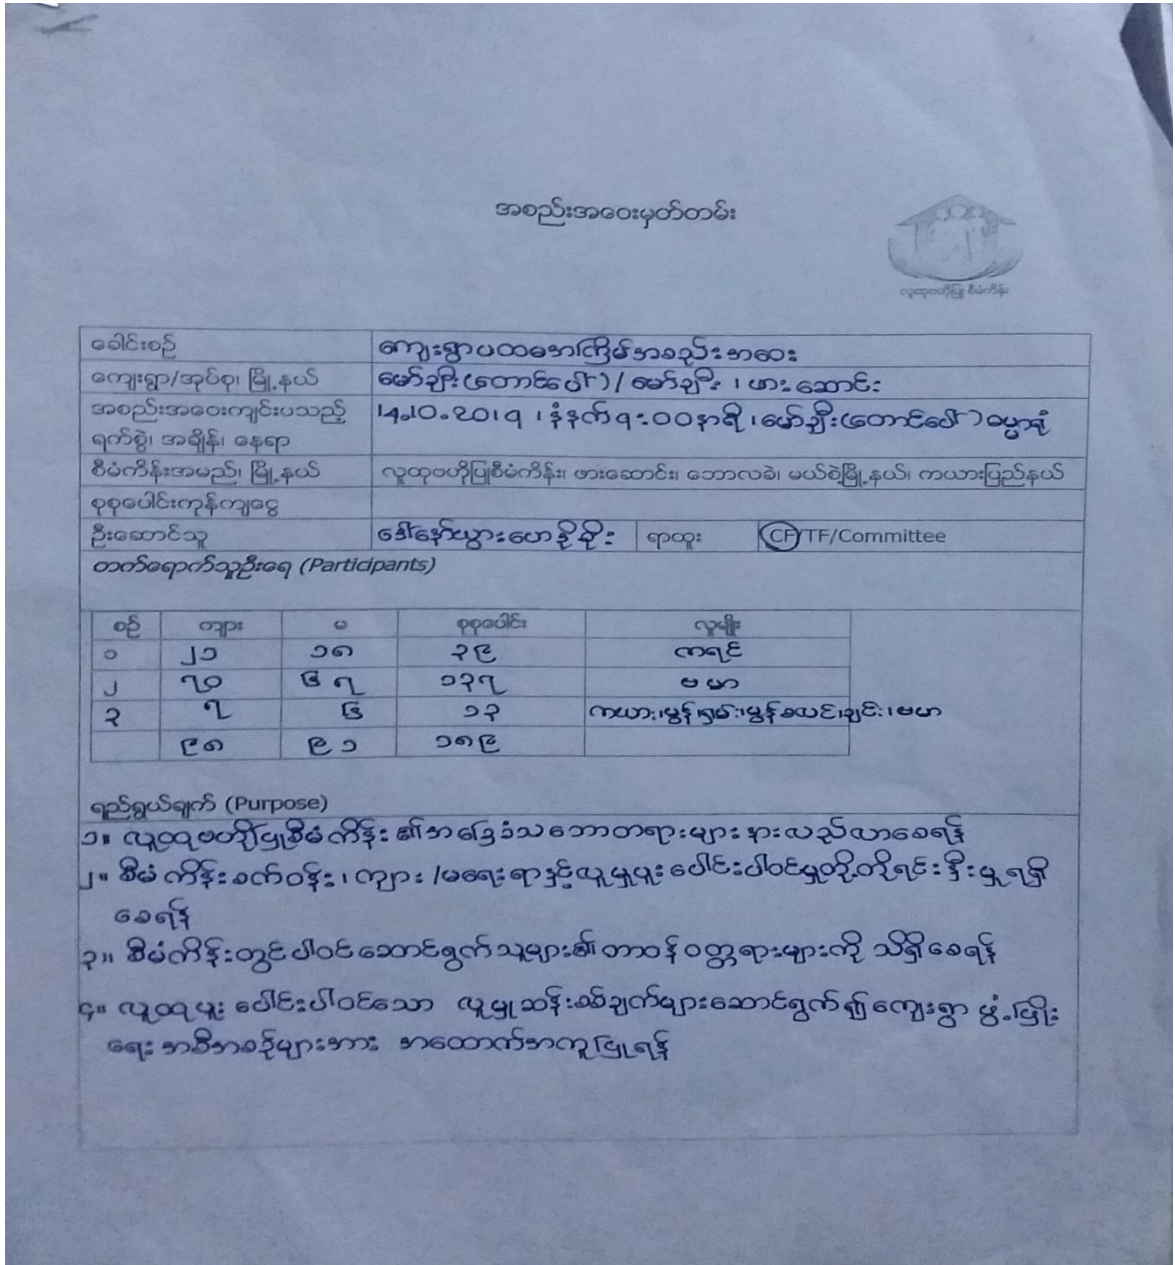 အစည်းအဝေးမှတ်တမ်း
လူထုဗဟိုပြု စီမံကိန်း
ခေါင်းစဉ် ကျေးရွာပထမအကြိမ်အစည်းအဝေး
ကျေးရွာ/အုပ်စု၊ မြို့နယ် မော်ချီး(တောင်ပေါ်)/ မော်ချီး ၊ ဖားဆောင်း
အစည်းအဝေးကျင်းပသည့် 14.10.2019 ၊ နံနက် ၎း၀၀နာရီ ၊မော်ချီး(တောင်ပေါ်) ဓမ္မာရုံ
ရက်စွဲ၊ အချိန်၊ နေရာ
စီမံကိန်းအမည်၊ မြို့နယ် လူထုဗဟိုပြုစီမံကိန်း၊ ဖားဆောင်း၊ ဘောလခဲ၊ မယ်စဲ့မြို့နယ်၊ ကယားပြည်နယ်
စုစုပေါင်းကုန်ကျငွေ
ဦးဆောင်သူ ဒေါ်နော်ယွားဟေနိုမိုး ရာထူး CF/TF/Committee
တက်ရောက်သူဦးရေ (Participants)
စဉ် ကျား မ စုစုပေါင်း လူမျိုး
၁ ၂၁ ၁၈ ၃၉ ကရင်
၂ ၇၀ ၆၇ ၁၃၇ ဗမာ
၃ ၇ ၆ ၁၃ ကယား၊မွန်၊ရှမ်း၊မွန်ခလင်၊ချင်း၊ဗမာ
၉၈ ၉၁ ၁၈၉
ရည်ရွယ်ချက် (Purpose)
၁။ လူထုဗဟိုပြုစီမံကိန်း ၏အခြေခံသဘောတရားများ နားလည်လာစေရန်
၂။ စီမံကိန်းစက်ဝန်း ၊ ကျား /မရေးရာနှင့်လူမှုပူးပေါင်းပါဝင်မှုတို့ကိုရင်းနှီးမှုရရှိ
စေရန်
၃။ စီမံကိန်းတွင်ပါဝင်ဆောင်ရွက်သူများ၏တာဝန်ဝတ္တရားများကို သိရှိစေရန်
၄။ လူထုပူးပေါင်းပါဝင်သော လူမှုဆန်းစစ်ချက်များဆောင်ရွက်၍ ကျေးရွာ ဖွံ့ဖြိုး
ရေး အစီအစဉ်များအား အထောက်အကူပြုရန်